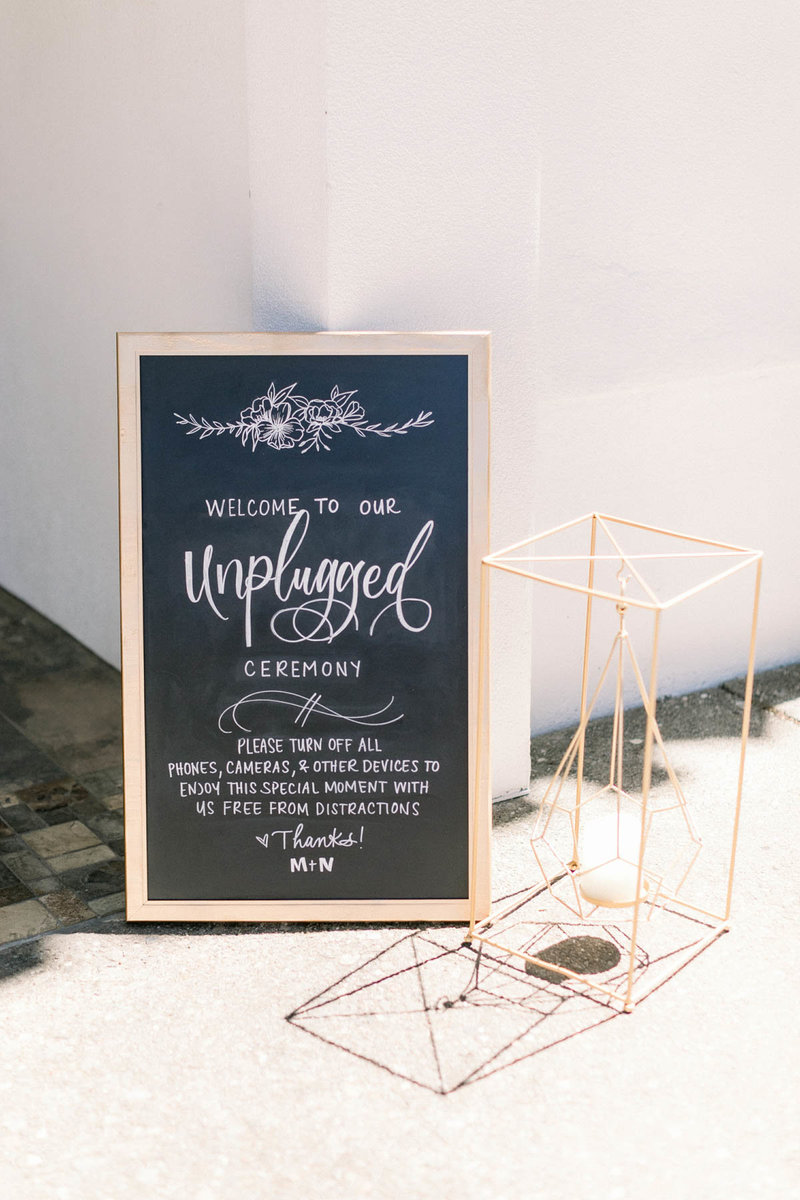 WELCOME TO OUR
Unplugged
CEREMONY
PLEASE TURN OFF ALL
PHONES, CAMERAS, & OTHER DEVICES TO
ENJOY THIS SPECIAL MOMENT WITH
US FREE FROM DISTRACTIONS
♡Thanks!
M+N